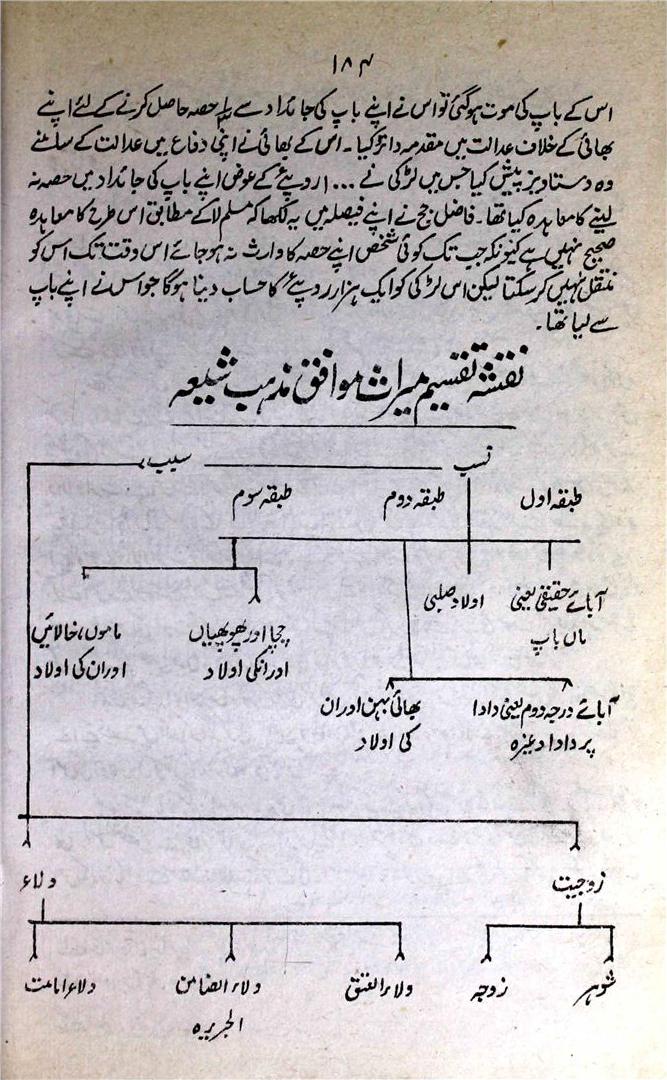 ۱۸۴
اس کے باپ کی موت ہوگئی تو اس نے اپنے باپ کی جائداد سے حصہ حاصل کرنے کے لئے اپنے
بھائی کے خلاف عدالت میں مقدمہ دائر کیا۔ اس کے بھائی نے اپنی دفاع میں عدالت کے سامنے
وہ دستاویز پیش کیا جس میں لڑکی نے ۱۰۰۰ روپیۓ کے عوض اپنے باپ کی جائداد میں حصہ نہ
لینے کا معاہدہ کیا تھا۔ فاضل جج نے اپنے فیصلہ میں یہ لکھا کہ مسلم لا کے مطابق اس طرح کا معاہدہ
صحیح نہیں ہے کیونکہ جب تک کوئی شخص اپنے حصہ کا وارث نہ ہو جائے اس وقت تک اس کو
منتقل نہیں کر سکتا لیکن اس لڑکی کو ایک ہزار روپیۓ کا حساب دینا ہوگا جو اس نے اپنے باپ
سے لیا تھا۔
نقشہ تقسیم میراث موافق مذہب شیعہ
نسب سبب
طبقہ اول طبقہ دوم طبقہ سوم
آبائے حقیقی یعنی اولاد صلبی
ماں باپ
چچا اور پھوپھیاں ماموں، خالائیں
اور انکی اولاد اور ان کی اولاد
آبائے درجہ دوم یعنی دادا بھائی بہن اور ان
پردادا وغیرہ کی اولاد
زوجیت ولاء
شوہر زوجہ ولاء العتق ولاء الضامن ولاء امامت
الجریرہ